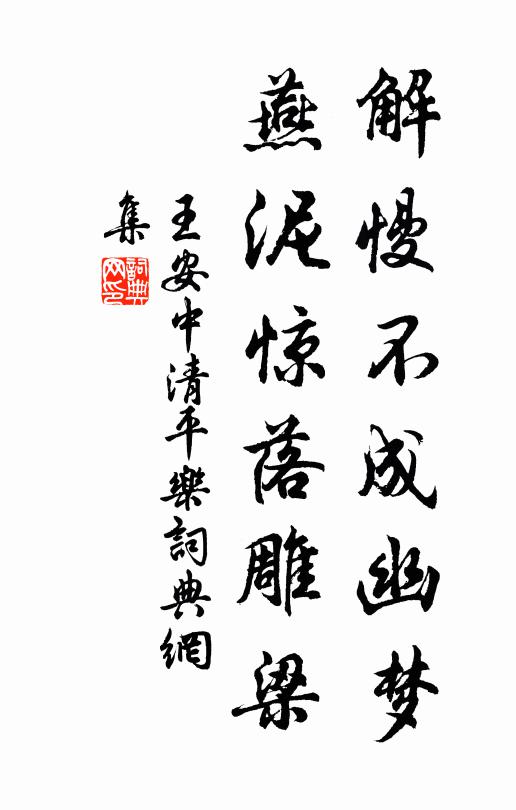 解慢不成幽梦
燕泥惊落雕梁
王安中清平樂詞典網
集
詞典網印